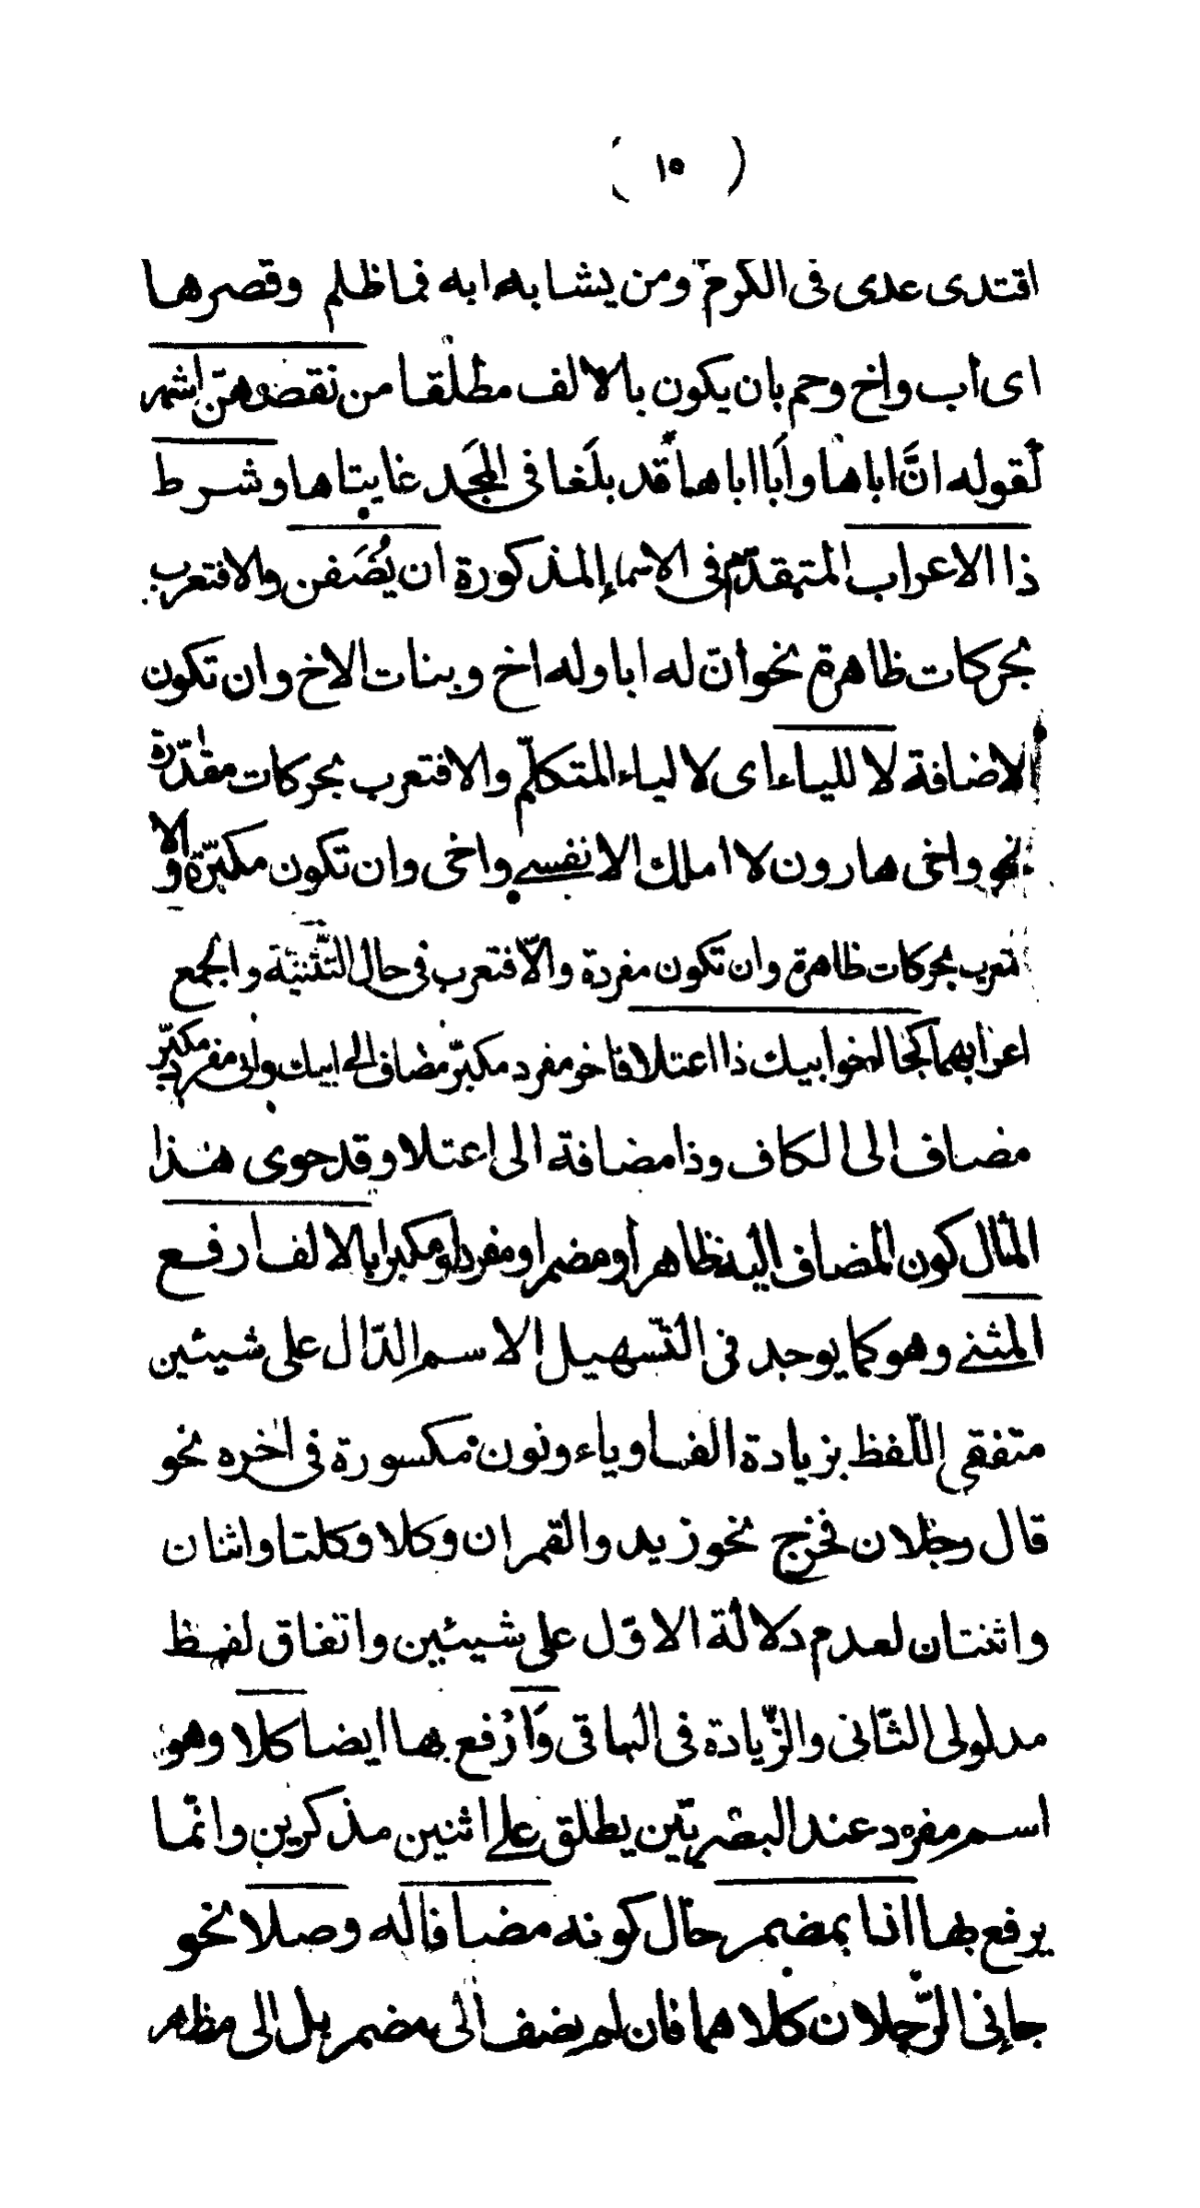 ( ١٥ )
اقتدى عدى فى الكرم ومن يشابه ابه فما ظلم وقصرها
اى اب واخ وحم بان يكون بالالف مطلقا من نقصهنّ اشهر
كقوله انَّ اباها وأبا اباها قد بلَغا فى المجَد غايتاها وشرط
ذا الاعراب المتقدّم فى الاسماء المذكورة ان يُضَفن والا فتعرب
بحركات ظاهرة نحو انّ له ابا وله اخ وبنات الاخ وان تكون
الاضافة لا للياء اى لا لياء المتكلّم والا فتعرب بحركات مقدّرة
نحو واخى هارون لا املك الا نفسى واخى وان تكون مكبّرة والا
تعرب بحركات ظاهرة وان تكون مفردة والّا فتعرب فى حال التّثنيّة والجمع
اعرابهما كجا اخو ابيك ذا اعتلا فاخو مفرد مكبّر مضاف الى ابيك وابى مفرد مكبّر
مضاف الى الكاف وذا مضافة الى اعتلا وقد حوى هذا
المثال كون المضاف اليه ظاهرا ومضمرا ومفردا ومكبرا بالالف ارفع
المثنى وهو كما يوجد فى التّسهيل الاسم الدّال على شيئين
متفقى اللّفظ بزيادة الف او ياء ونون مكسورة فى اخره نحو
قال رجلان فخرج نحو زيد والقمران وكلا وكلتا واثنان
واثنتان لعدم دلالة الاوّل على شيئين واتفاق لفظ
مدلولى الثّانى والزّيادة فى الباقى وَارْفع بها ايضا كلا وهو
اسم مفرد عند البصريّين يطلق على اثنين مذكرين وانّما
يرفع بها اذا بمضمر حال كونه مضافا له وصلا نحو
جاءنى الرّجلان كلاهما فان لم يضف الى مضمر بل الى مظهر